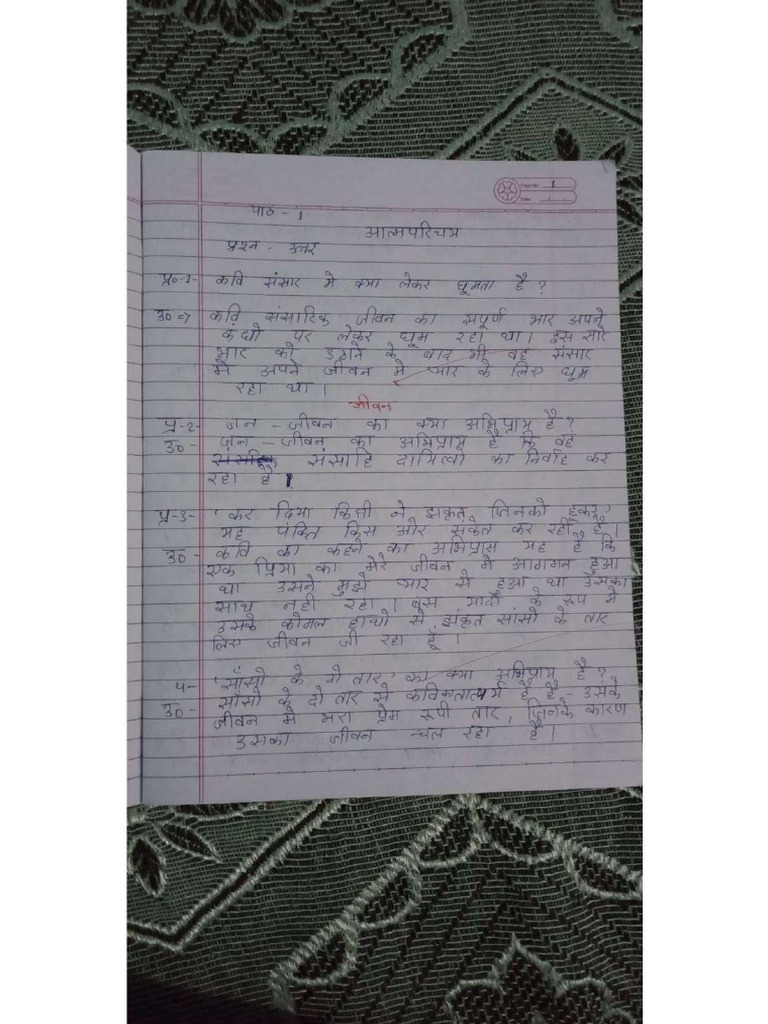 Page No. 1
Date
पाठ - 1
आत्मपरिचय
प्रश्न - उत्तर
प्र०-1- कवि संसार मे क्या लेकर घूमता है ?
उ०=> कवि संसारिक जीवन का सपूर्ण भार अपने
कंधो पर लेकर घूम रहा था। इस सारे
भार को उठाने के बाद भी वह संसार
मे अपने जीवन मे प्यार के लिए घूम
रहा था।
जीवन
प्र-2- जन - जीवन का क्या अभिप्राय है ?
उ०- जन - जीवन का अभिप्राय है कि वह
संसाहि दायित्वो का निर्वाह कर
रहा है।
प्र-3- 'कर दिया किसी ने झकृत जिनको छूकर'
यह पंक्ति किस ओर संकेत कर रही है।
उ०- कवि का कहने का अभिप्रास यह है कि
एक प्रिया का मेरे जीवन मे आगमन हुआ
था उसने मुझे प्यार से हुआ था उसका
साथ नही रहा। के रूप मे
उसके कोमल हाथो से झंकृत सांसो के तार
लिए जीवन जी रहा हूँ।
4- 'साँसो के दो तार' का क्या अभिप्राय है ?
उ०- साँसो के दो तार से कविकातात्पर्य है है - उसके
जीवन मे भरा प्रेम रूपी तार, जिनके कारण
उसका जीवन चल रहा है।